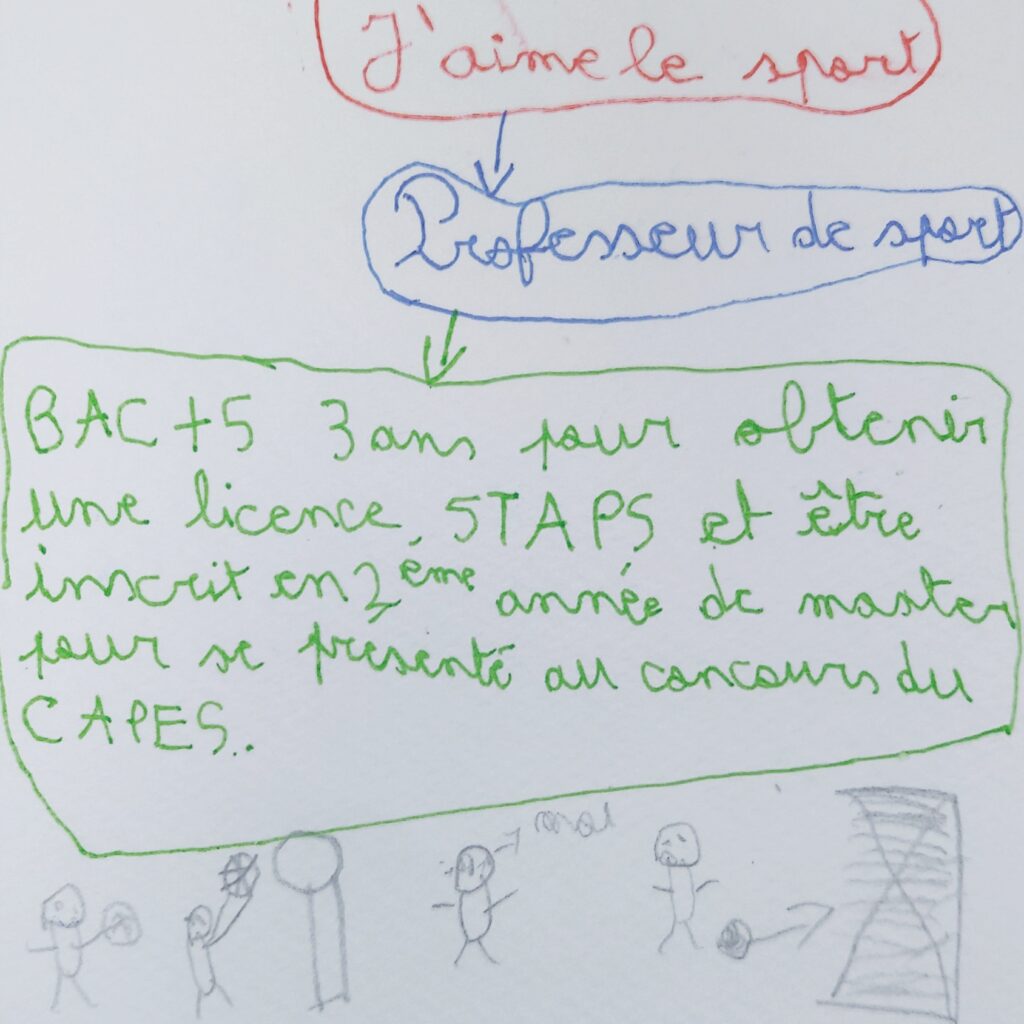 J'aime le sport
Professeur de sport
BAC +5 3 ans pour obtenir
une licence STAPS et être
inscrit en 2ème année de master
pour se présenté au concours du
CAPES..
moi